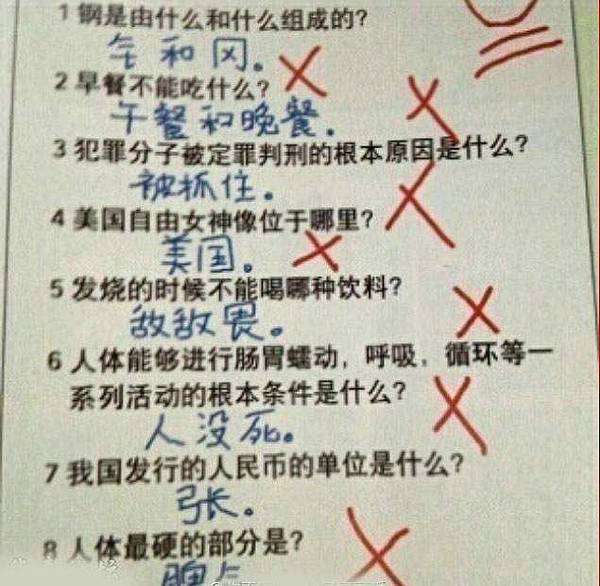 1 钢是由什么和什么组成的?
钅和冈。
2 早餐不能吃什么?
午餐和晚餐.
3 犯罪分子被定罪判刑的根本原因是什么?
被抓住.
4 美国自由女神像位于哪里?
美国。
5 发烧的时候不能喝哪种饮料?
敌敌畏。
6 人体能够进行肠胃蠕动，呼吸，循环等一
系列活动的根本条件是什么?
人没死。
7 我国发行的人民币的单位是什么?
张。
8 人体最硬的部分是?